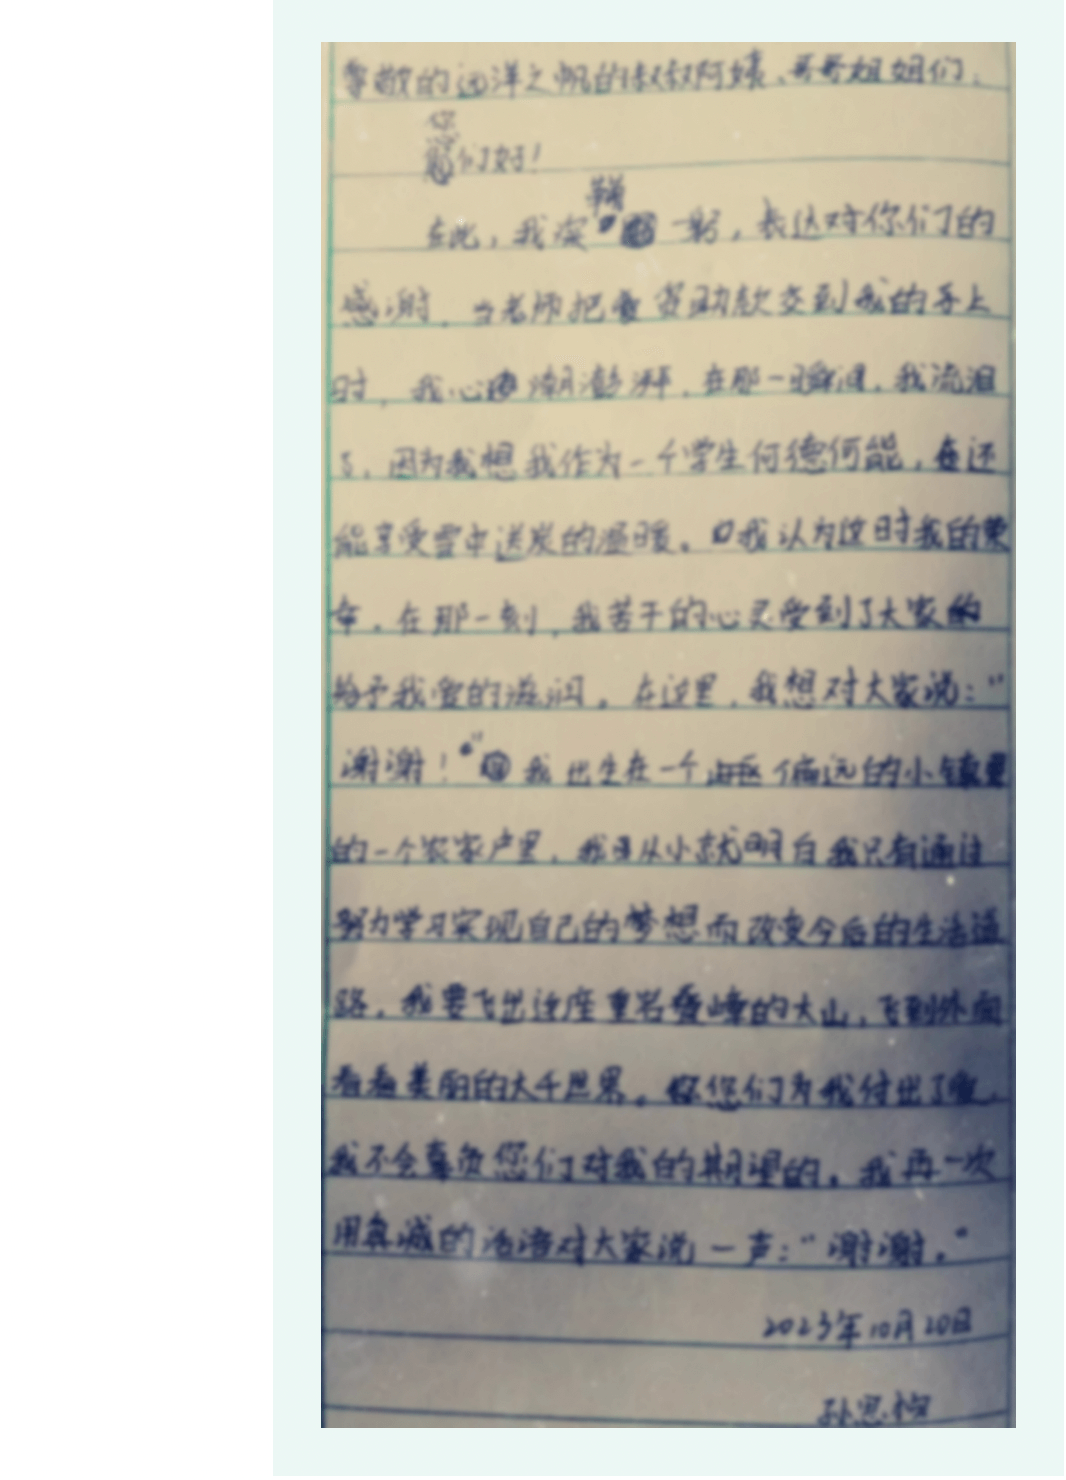 尊敬的远洋之帆的叔叔阿姨、哥哥姐姐们:
您们好!
在此,我深鞠一躬,表达对你们的
感谢,当老师把资助款交到我的手上
时,我心潮澎湃,在那一瞬间,我流泪
了,因为我想我作为一个学生何德何能,还
能享受雪中送炭的温暖。我认为这时我的荣
幸,在那一刻,我苦干的心灵受到了大家
给予我爱的滋润。在这里,我想对大家说:“
谢谢!”我出生在一个偏远的小镇里
的一个农家户里,我从小就明白我只有通过
努力学习实现自己的梦想而改变今后的生活道
路,我要飞出这座重岩叠嶂的大山,飞到外面
看看美丽的大千世界。您们为我付出了爱,
我不会辜负您们对我的期望的。我再一次
用真诚的话语对大家说一声:“谢谢。”
2023年10月20日
孙思